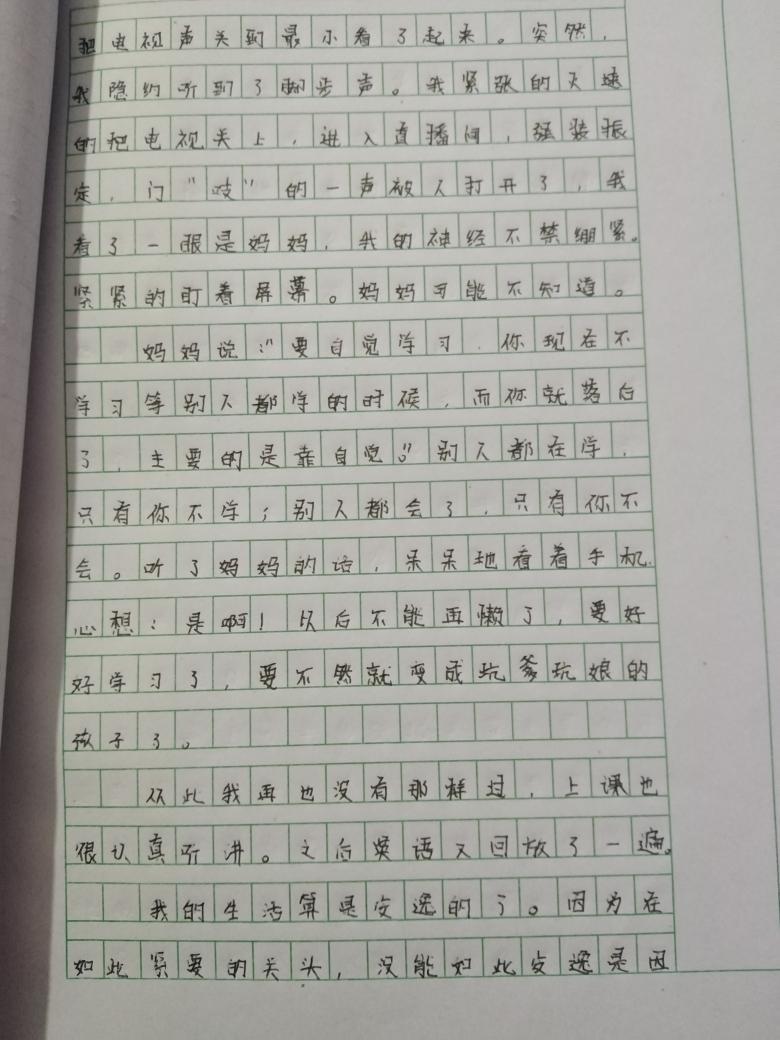 把电视声关到最小看了起来。突然，
我隐约听到了脚步声。我紧张的火速
的把电视关上，进入直播间，强装振
定，门“吱”的一声被人打开了，我
看了一眼是妈妈，我的神经不禁绷紧。
紧紧的盯着屏幕。妈妈可能不知道。
妈妈说：“要自觉学习，你现在不
学习等别人都学的时候，而你就落后
了，主要的是靠自觉。”别人都在学，
只有你不学；别人都会了，只有你不
会。听了妈妈的话，呆呆地看着手机
心想：是啊！以后不能再懒了，要好
好学习了，要不然就变成坑爹坑娘的
孩子了。
从此我再也没有那样过，上课也
很认真听讲。之后英语又回放了一遍。
我的生活算是安逸的了。因为在
如此紧要的关头，没能如此安逸是因